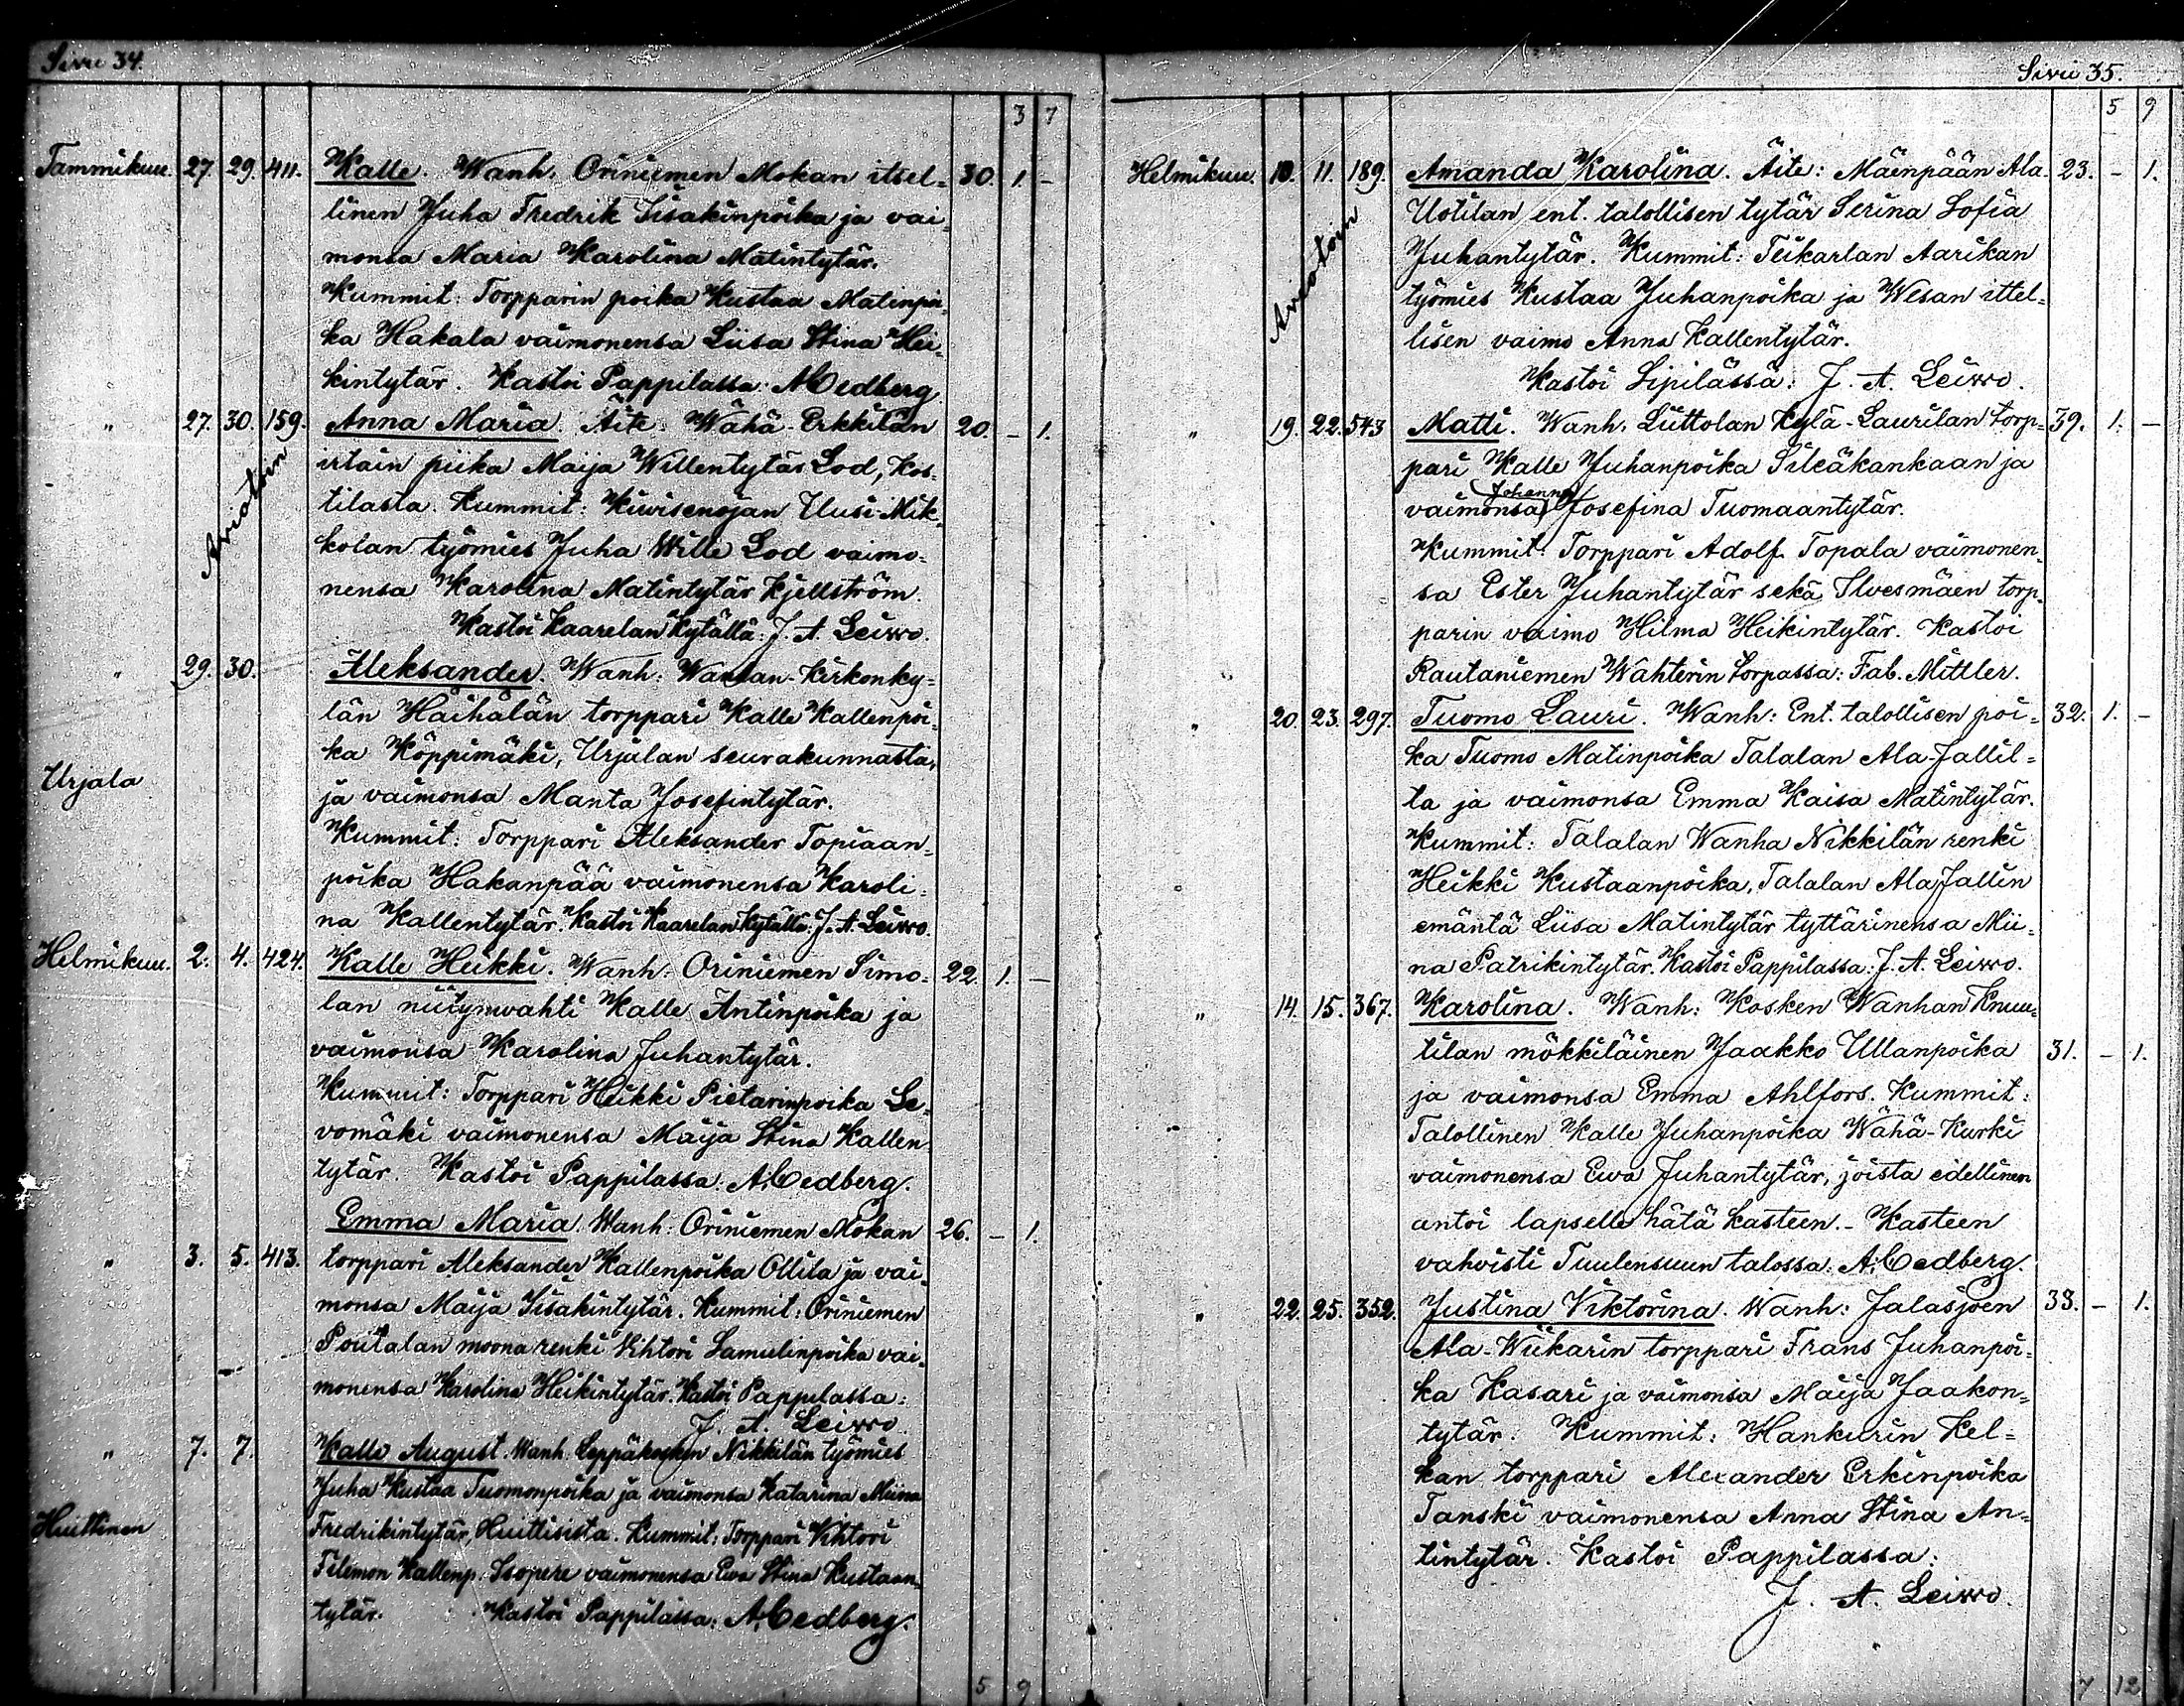 Sivu 34.
3 7
Tammikuu. 27. 29. 411. Kalle. Wanh. Oriniemen Mokan itsel= 30. 1. -
linen Juha Fredrik Iisakinpoika ja vai
monsa Maria Karolina Matintytär.
Kummit: Torpparin poika Kustaa Matinpoi
ka Hakala vaimonensa Liisa Stina Hei=
kintytär. Kastoi Pappilassa: A. Cedberg
" 27. 30. 159. Anna Maria. Äite: Wähä-Erkkilän 20. - 1.
Aviotoin
irtain piika Maija Willentytär Lod, Kos=
tilasta. Kummit: Kiwisenojan Uusi-Mik=
kolan työmies Juha Wille Lod vaimo-
nensa Karolina Matintytär Kjellström.
Kastoi Kaarelan kytällä: J. A. Leiwo.
" 29. 30. Aleksander. Wanh: Kirkonky=
län Haihalan torppari Kalle Kallenpoi=
ka Köppimäki, Urjalan seurakunnasta,
Urjala
ja vaimonsa Manta Josefintytär.
Kummit: Torppari Aleksander Topiaan=
poika Hakanpää vaimonensa Karoli=
na Kallentytär. Kastoi Kaarelan kytällä: J. A. Leiwo.
Helmikuu. 2. 4. 424. Kalle Heikki. Wanh: Oriniemen Simo= 22. 1. -
lan niitynwahti Kalle Antinpoika ja
vaimonsa Karolina Juhantytär.
Kummit: Torppari Heikki Pietarinpoika Le=
vomäki vaimonensa Maija Stina Kallen
tytär. Kastoi Pappilassa: A. Cedberg.
Emma Maria. Wanh: Oriniemen Mokan 26. - 1.
" 3. 5. 413. torppari Aleksander Kallenpoika Ollila ja vai=
monsa Maija Iisakintytär. Kummit: Oriniemen
Poutalan moonarenki Vihtori Samulinpoika vai=
monensa Karolina Heikintytär. Kastoi Pappilassa:
J. A. Leiwo.
" 7. 7. Kalle August. Wanh. Leppäkosken Nikkilän työmies
Juha Kustaa Tuomonpoika ja vaimonsa Katarina Miina
Huittinen
Fredrikintytär, Huittisista. Kummit: Torppari Vihtori
Filemon Kallenp. Isopere vaimonensa Ewa Stina Kustaan=
tytär. Kastoi Pappilassa: A. Cedberg.
5 9
Sivu 35.
5 9
Helmikuu. 10. 11. 189. Amanda Karolina. Äite: Mäenpään Ala 23. - 1.
Aviotoin
Uotilan ent. talollisen tytär Serina Sofia
Juhantytär. Kummit: Teikarlan Aarikan
työmies Kustaa Juhanpoika ja Wesan ittel=
lisen vaimo Anna Kallentytär.
Kastoi Sipilässä: J. A. Leiwo.
" 19. 22. 543 Matti. Wanh. Liittolan Kylä-Laurilan torp= 39. 1. -
pari Kalle Juhanpoika Sileäkankaan ja
Johanna
vaimonsa Josefina Tuomaantytär.
Kummit: Torppari Adolf Topala vaimonen=
sa Ester Juhantytär sekä Ilvesmäen torp=
parin vaimo Hilma Heikintytär. Kastoi
Rautaniemen Wahterin torpassa: Fab. Mittler.
" 20. 23. 297. Tuomo Lauri. Wanh: Ent. talollisen poi= 32. 1. -
ka Tuomo Matinpoika Talalan Ala-Jallil=
ta ja vaimonsa Emma Kaisa Matintytär.
Kummit: Talalan Wanha Nikkilän renki
Heikki Kustaanpoika, Talalan Ala Jallin
emäntä Liisa Matintytär tyttärinensa Mii=
na Patrikintytär. Kastoi Pappilassa: J. A. Leiwo.
" 14. 15. 367. Karolina. Wanh: Kosken Wanhan Knuu=
tilan mökkiläinen Jaakko Ullanpoika 31. - 1.
ja vaimonsa Emma Ahlfors. Kummit:
Talollinen Kalle Juhanpoika Wähä-Kurki
vaimonensa Ewa Juhantytär, joista edellinen
antoi lapselle hätä kasteen. - Kasteen
vahvisti Tuulensuun talossa: A. Cedberg.
" 22. 25. 352. Justina Viktorina. Wanh: Jalasjoen 33. - 1.
Ala-Wiikarin torppari Frans Juhanpoi=
ka Kasari ja vaimonsa Maija Jaakon=
tytär. Kummit: Hankurin Kel=
kan torppari Alexander Erkinpoika
Tanski vaimonensa Anna Stina An=
tintytär. Kastoi Pappilassa:
J. A. Leiwo.
7 12